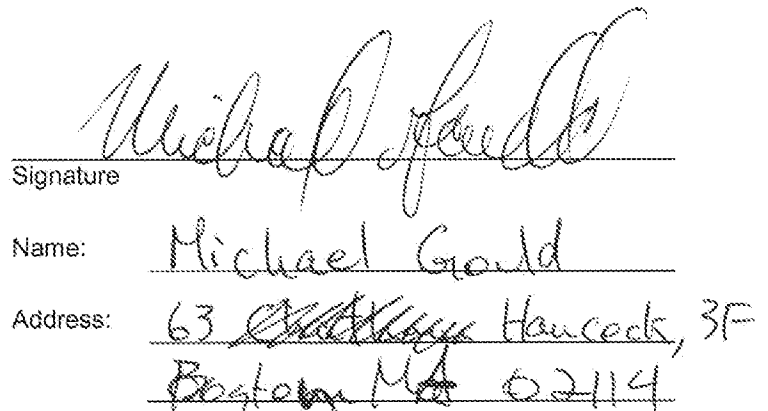 Michael Gould
Signature
Name: Michael Gould
Address: 63 Hancock, 3F
Boston MA 02114